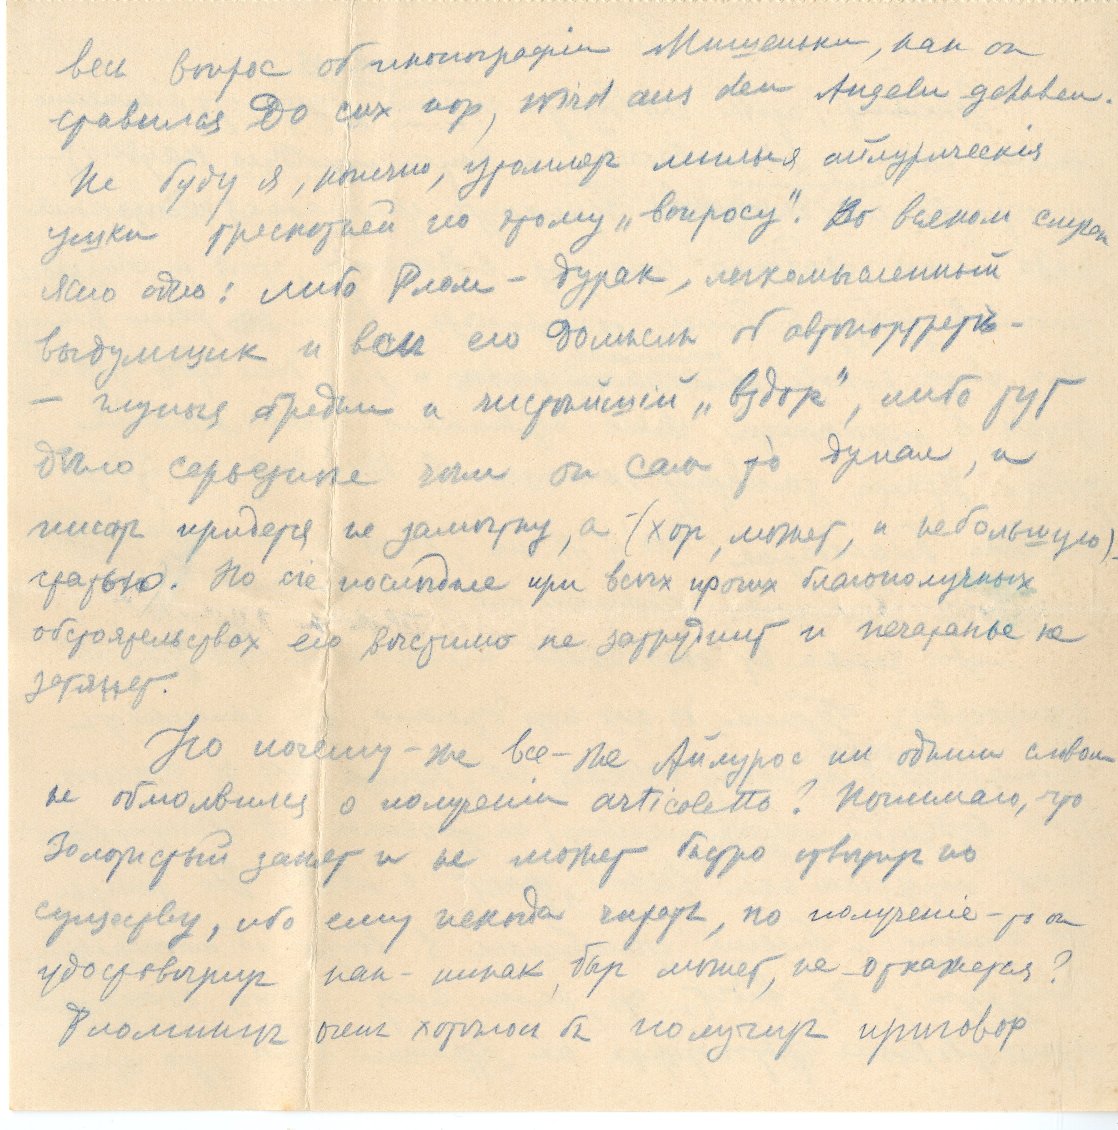 весь вопрос об иконографiи Мишеньки, как он
ставился До сих пор, wird aus den Angeln gehoben.
Не буду я, конечно, утомлять милыя айлурическiя
ушки трескотней по этому „вопросу". Во всяком случае
ясно одно: либо Флом – дурак, легкомысленный
выдумщик и все его Домыслы об автопортретѣ –
– глупыя бредни и чистѣйшiй „вздор", либо тут
дѣло серьезнее чѣм он сам то думал, и
писать придется не замѣтку, а – (хоть, может, и небольшую) –
статью. Но сiе послѣднее при всѣх прочих благополучных
обстоятельствах его вѣстимо не затруднит и печатанье не
затянет.
Но почему-же все-же Айлурос ни одним словом
не обмолвился о полученiи articoletto? Понимаю, что
Золотистый занят и не может быстро отвѣтить по
существу, ибо ему некогда читать, но полученiе-то он
удостовѣрить как-никак, быть может, не откажется?
Фломишкѣ очень хотѣлось бы получить приговор